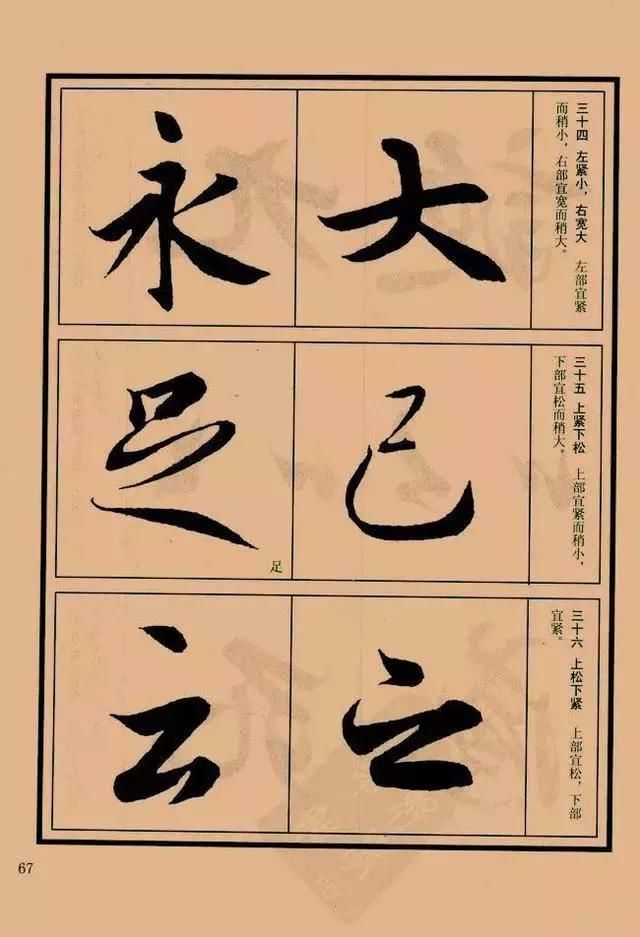 三十四 左紧小，右宽大 左部宜紧
而稍小，右部宜宽而稍大。
大
永
三十五 上紧下松 上部宜紧而稍小，
下部宜松而稍大。
已
足
足
三十六 上松下紧 上部宜松，下部
宜紧。
之
云
67